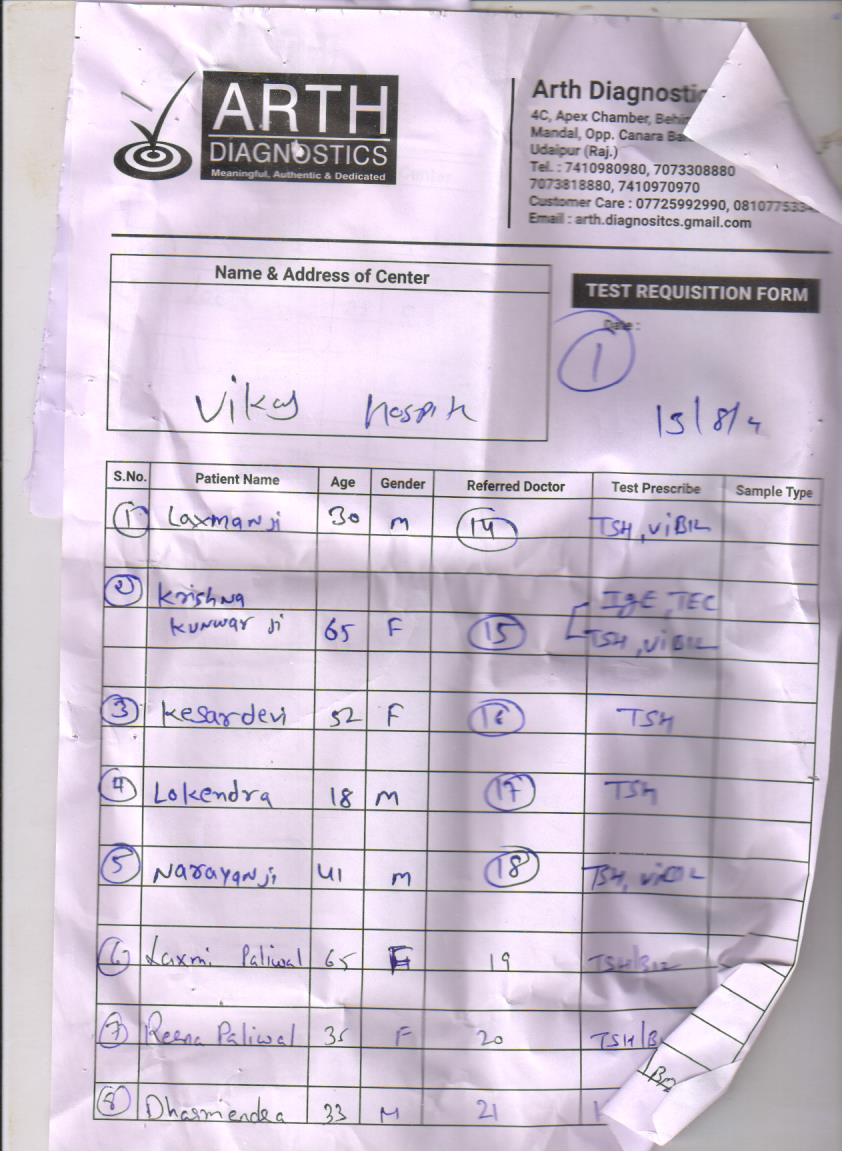 ARTH
DIAGNOSTICS
Meaningful, Authentic & Dedicated
Arth Diagnostic
4C, Apex Chamber, Behin
Mandal, Opp. Canara Ba
Udaipur (Raj.)
Tel. : 7410980980, 7073308880
7073818880, 7410970970
Customer Care : 07725992990, 081077533
Email : arth.diagnositcs.gmail.com
Name & Address of Center
TEST REQUISITION FORM
Date :
1
Vikas Hospit
S.No. Patient Name Age Gender Referred Doctor Test Prescribe Sample Type
1 Laxmanji 30 M 14 TSH, ViB12
2 Krishna IgE, TEC
Kunwar ji 65 F 15 TSH, ViB12
3 Kesardevi 52 F 16 TSH
4 Lokendra 18 M 17 TSH
5 Narayanji 41 M 18 TSH, ViB12
6 Laxmi Paliwal 65 F 19 TSH/B12
7 Reena Paliwal 35 F 20 TSH/B
8 Dharmendra 33 M 21